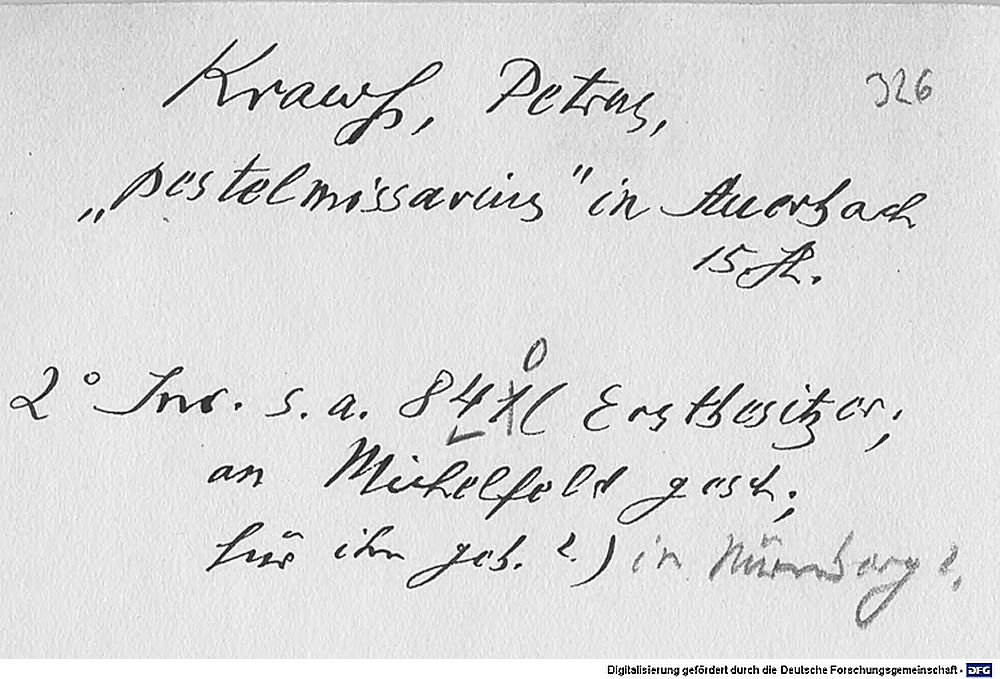 Krawß, Petrus, 326
„pestelmissarius" in Auerbach
15. Jh.
2° Inc. s. a. 841 (Erstbesitzer;
0
an Michelfeld gesch.;
für ihn geb.?) in Nürnberg?
Digitalisierung gefördert durch die Deutsche Forschungsgemeinschaft - DFG